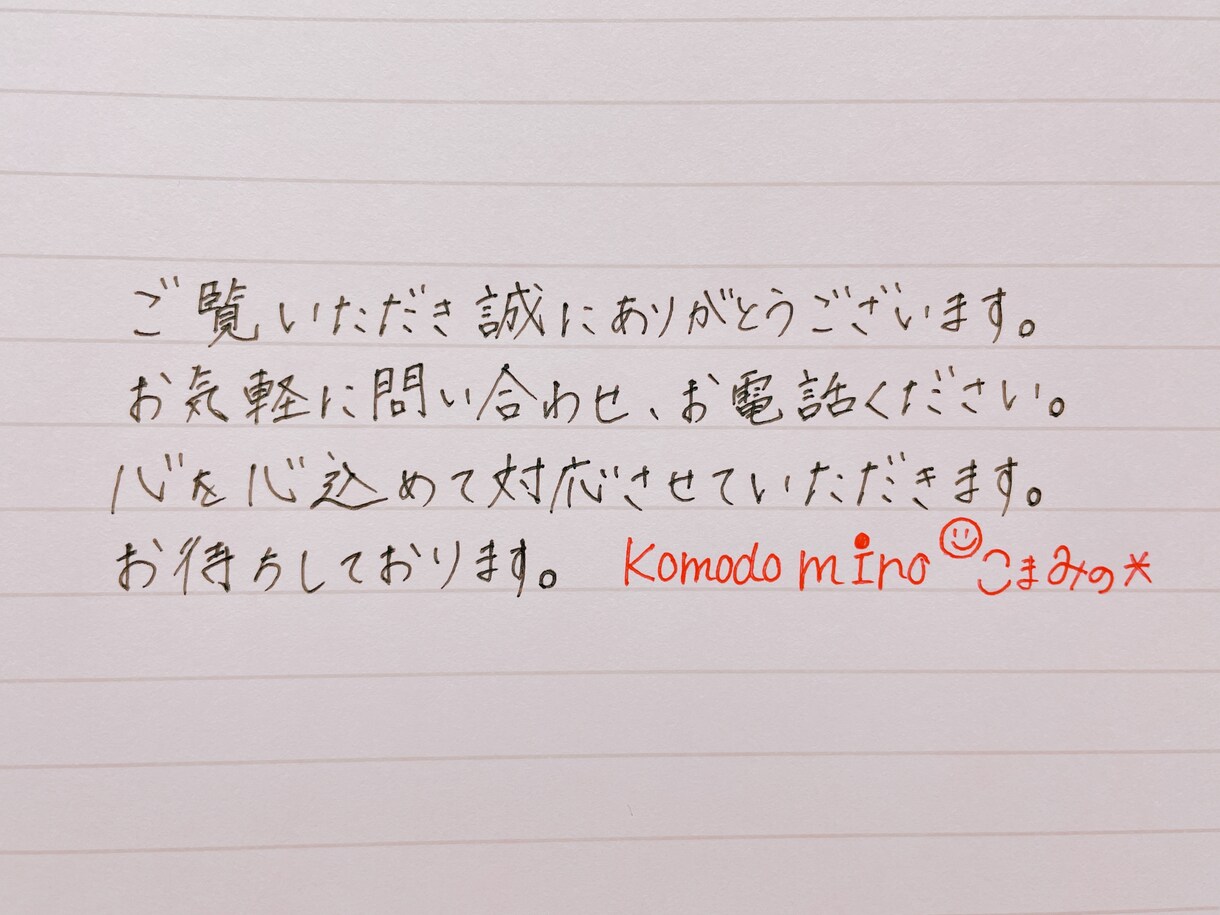 ご覧いただき誠にありがとうございます。
お気軽に問い合わせ、お電話ください。
心を心込めて対応させていただきます。
お待ちしております。 Komodo mino こまみの*